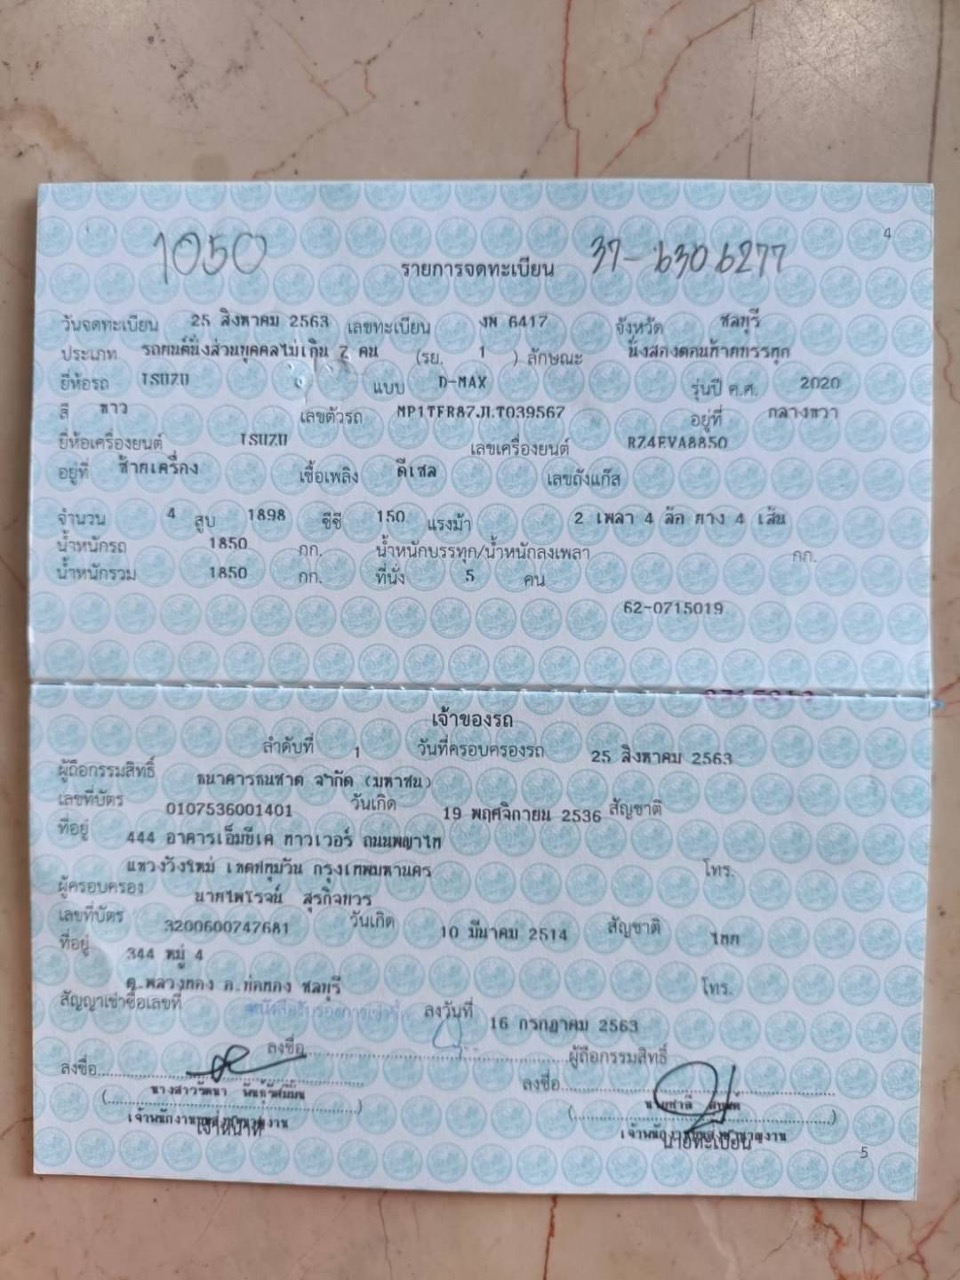 4
1050 รายการจดทะเบียน 37-6306277
วันจดทะเบียน 25 สิงหาคม 2563 เลขทะเบียน งพ 6417 จังหวัด ชลบุรี
ประเภท รถยนต์นั่งส่วนบุคคลไม่เกิน 7 คน (รย. 1 ) ลักษณะ นั่งสองตอนท้ายบรรทุก
ยี่ห้อรถ ISUZU แบบ D-MAX รุ่นปี ค.ศ. 2020
สี ขาว เลขตัวรถ MP1TFR87JLT039567 อยู่ที่ กลางขวา
ยี่ห้อเครื่องยนต์ ISUZU เลขเครื่องยนต์ RZ4EVA8850
อยู่ที่ ซ้ายเครื่อง เชื้อเพลิง ดีเซล เลขถังแก๊ส
จำนวน 4 สูบ 1898 ซีซี 150 แรงม้า 2 เพลา 4 ล้อ ยาง 4 เส้น
น้ำหนักรถ 1850 กก. น้ำหนักบรรทุก/น้ำหนักลงเพลา กก.
น้ำหนักรวม 1850 กก. ที่นั่ง 5 คน
62-0715019
เจ้าของรถ
ลำดับที่ 1 วันที่ครอบครองรถ 25 สิงหาคม 2563
ผู้ถือกรรมสิทธิ์ ธนาคารธนชาต จำกัด (มหาชน)
เลขที่บัตร 0107536001401 วันเกิด 19 พฤศจิกายน 2536 สัญชาติ
ที่อยู่ 444 อาคารเอ็มบีเค ทาวเวอร์ ถนนพญาไท
แขวงวังใหม่ เขตปทุมวัน กรุงเทพมหานคร โทร.
ผู้ครอบครอง นายไพโรจน์ สุรกิจบวร
เลขที่บัตร 3200600747681 วันเกิด 10 มีนาคม 2514 สัญชาติ ไทย
ที่อยู่ 344 หมู่ 4
ต.พลวงทอง อ.บ่อทอง ชลบุรี โทร.
สัญญาเช่าซื้อเลขที่ ลงวันที่ 16 กรกฎาคม 2563
ลงชื่อ ผู้ถือกรรมสิทธิ์
ลงชื่อ ลงชื่อ
นางสาวรัตนา
เจ้าหน้าที่ นายทะเบียน
5